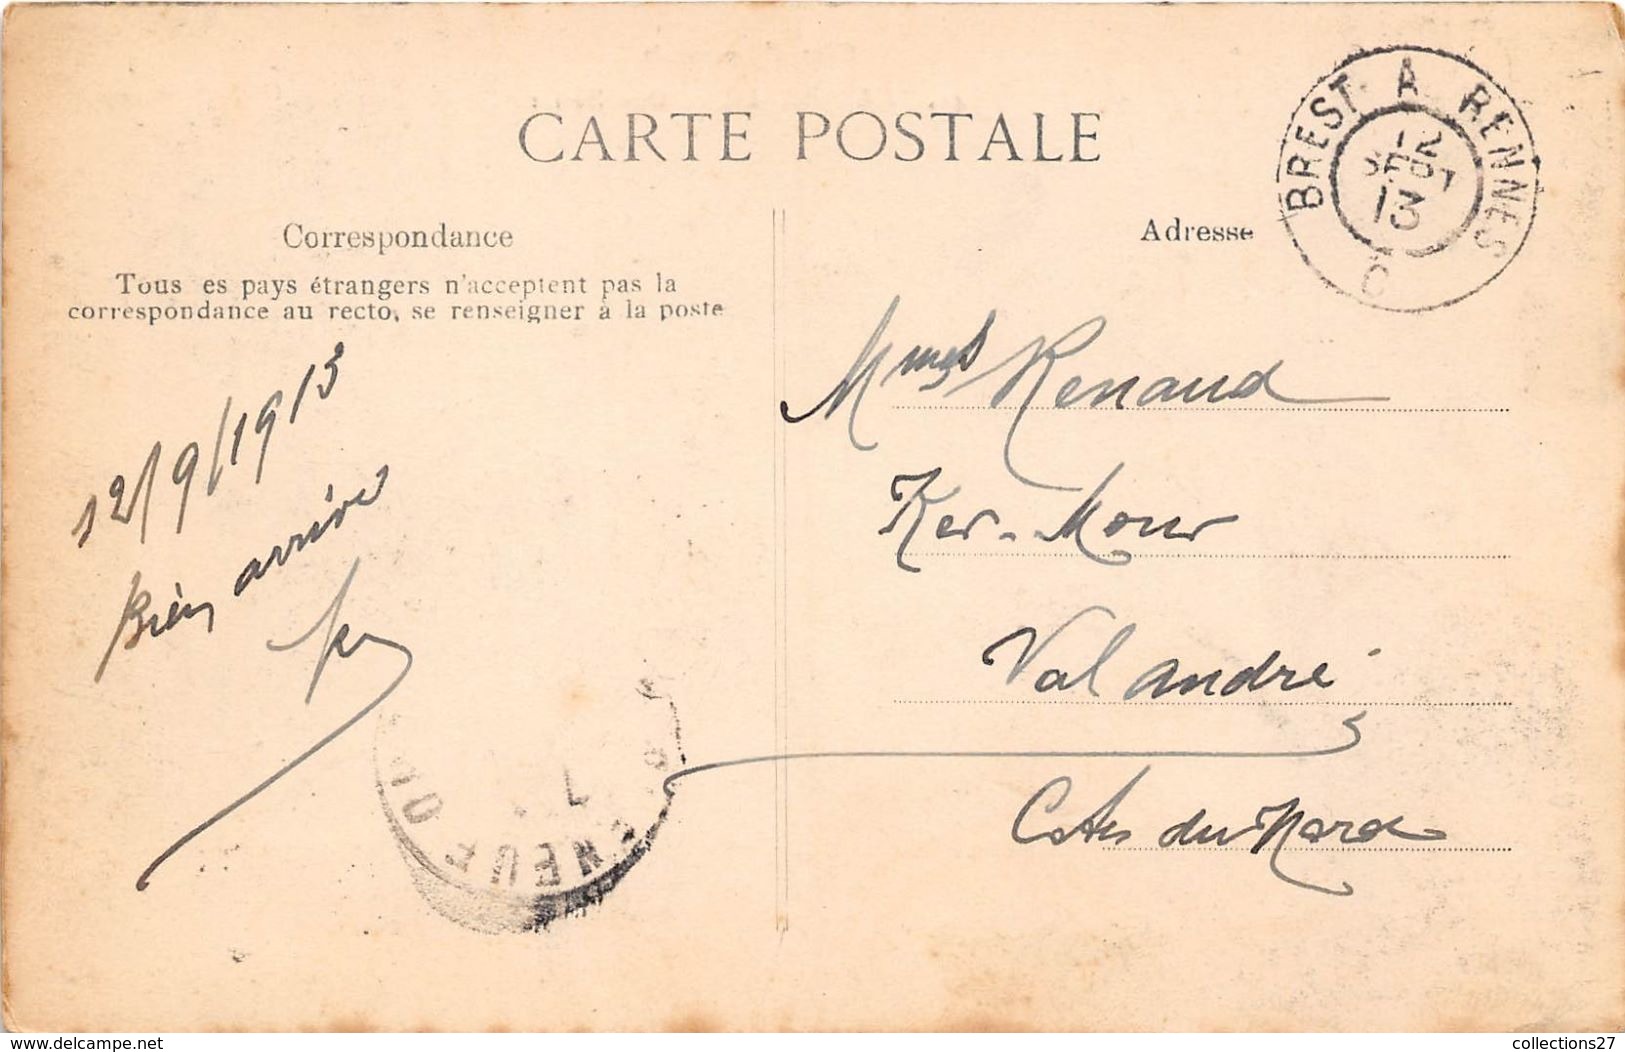 CARTE POSTALE
Correspondance
Tous es pays étrangers n'acceptent pas la
correspondance au recto, se renseigner à la poste
12/9/1913
Bien arrivé
Adresse
BREST A RENNES
12
SEPT
13
Mmes Renaud
Ker-Mour
Val andré
Côtes du Nord
www.delcampe.net
collections27